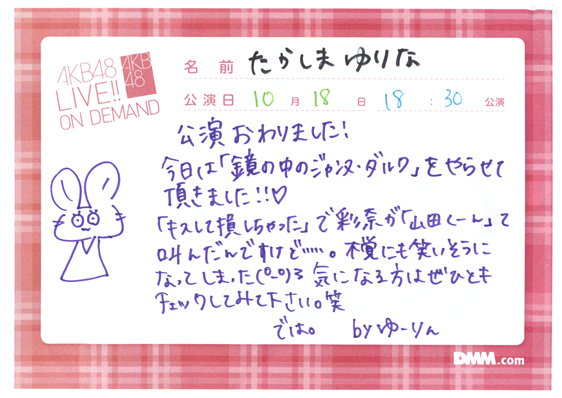 AKB48
LIVE!!
ON DEMAND
AKB
48
名前 たかしま ゆりな
公演日 10月18日 18:30公演
公演おわりました!
今日は「鏡の中のジャンヌ・ダルク」をやらせて
頂きました!!♡
「キスして損しちゃった」で彩奈が「山田くーん」て
叫んだんですけど……。不覚にも笑いそうに
なってしまった(0_0)3 気になる方はぜひとも
チェックしてみて下さい。笑
では。 by ゆーりん
DMM.com